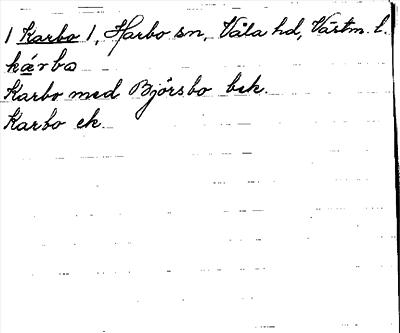 / Karbo /, Harbo sn, Våla hd, Västm. l.
kárbo
Karbo med Bjórsbo bek.
Karbo ek